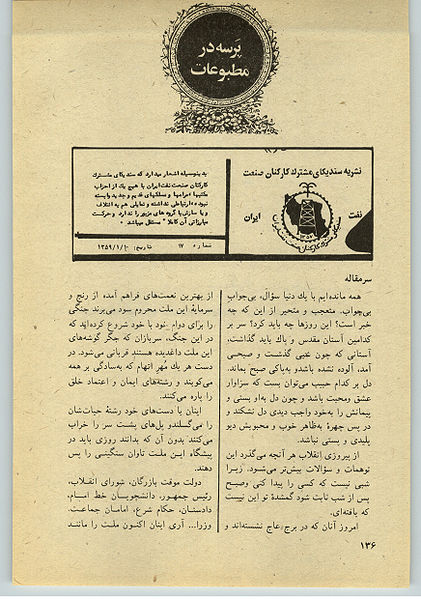 پَرسه در
مطبوعات
نشریه سندیکای مشترک کارکنان صنعت
نفت ایران
به‌بنوسیله اشعار میدارد که سندیکای مشترک
کارکنان صنعت نفت ایران با هیچ یک از احزاب
نبوده و ارتباطی نداشته و تمایلی هم به ائتلاف
و یا سازش با گروه های مزبور را ندارد و حرکت
مبارزاتی آن کاملا" مستقل میباشد
شماره ۱۷ تاریخ: ۱۳۵۹/۱/۱۰
سرمقاله
همه مانده‌ایم با یك دنیا سؤال، بی‌جوابِ
بی‌جواب. متعجب و متحیر از این که چه
خبر است؟ این روزها چه باید کرد؟ سر بر
کدامین آستان مقدس و پاك باید گذاشت،
آستانی که چون غیبی گذشت و صبحی
آمد، آلوده نشده باشدو به‌پاکی صبح بماند.
دل بر کدام حبیب می‌توان بست که سزاوار
عشق ومحبت باشد و چون دل به‌او بستی و
پیمانش را به‌خود واجب دیدی دل نشکند و
در پس چهرهٔ به‌ظاهر خوب و محبوبش دیو
پلیدی و پستی نباشد.
از پیروزی انقلاب هر آنچه می‌گذرد این
توهمات و سؤالات بیش‌تر می‌شود. زیرا
شبی نیست که کسی را پیدا کنی وصبح
پس از شب ثابت شود گمشدهٔ تو این نیست
که یافته‌ای.
امروز آنان که در برج عاج نشسته‌اند و
از بهترین نعمت‌های فراهم آمده از رنج و
سرمایهٔ این ملت محروم سود می‌برند جنگی
را برای دوام نمود با خود شروع کرده‌اند که
در این جنگ، سربازان که جگر گوشه‌های
این ملت داغدیده هستند قربانی می‌شود. در
دست هر یك مُهرِ اتهام که به‌سادگی بر همه
می‌کوبند و رشته‌های ایمان و اعتماد خلق
را پاره می‌کنند.
اینان با دست‌های خود رشتهٔ حیات‌شان
را می‌گسلندو پل‌های پشت سر را خراب
می‌کنند بدون آن که بدانند روزی باید در
پیشگاه این ملت تاوان سنگینی را پس
دهند.
دولت موقت بازرگان، شورای انقلاب،
رئیس جمهور، دانشجویان خط امام،
دادستان، حکام شرع، امامان جماعت،
وزرا... آری اینان اکنون ملت را مانند
۱۳۶